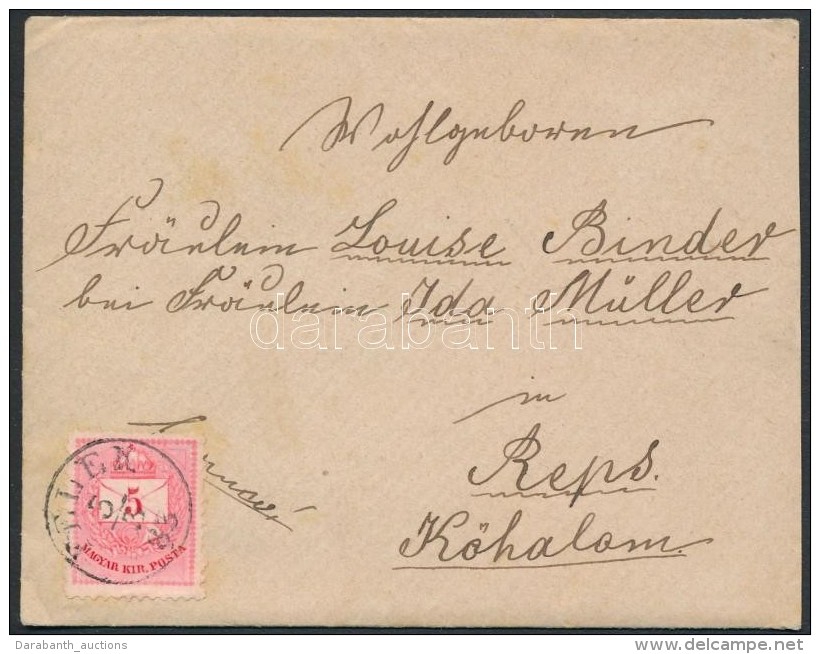 Wohlgeboren
Fräulein Louise Binder
bei Fräulein Ida Müller
in
Reps.
Kőhalom.
5
MAGYAR KIR. POSTA
darabanth
Darabanth_auctions
www.delcampe.net